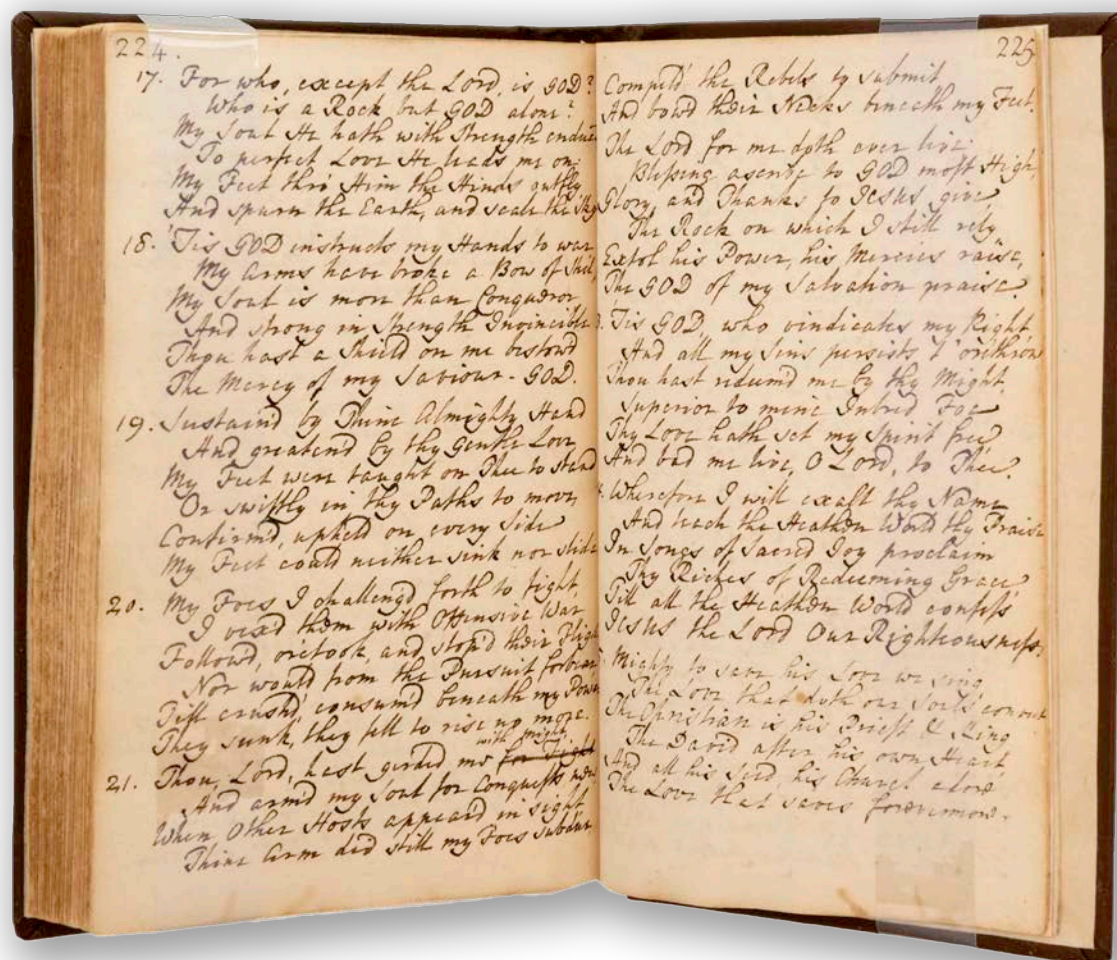 224.
17. For who, except the Lord, is GOD?
Who is a Rock but GOD alone?
My Soul He hath with Strength endu'd
To perfect Love He leads me on:
My Feet thro' Him the Hinds outfly
And spurn the Earth, and scale the Sky
18. 'Tis GOD instructs my Hands to war
My Arms have broke a Bow of Steel,
My Soul is more than Conqueror
And strong in Strength Invincible
Thou hast a Shield on me bestow'd
The Mercy of my Saviour-GOD.
19. Sustain'd by Thine Almighty Hand
And greaten'd by thy Gentle Love
My Feet were taught on Thee to stand
Or swiftly in thy Paths to move,
Confirm'd, upheld on every Side
My Feet could neither sink nor slide
20. My Foes I challeng'd forth to fight,
I vex'd them with Offensive War
Follow'd, o'retook, and stop'd their Flight
Nor would from the Pursuit forbear
Till crush'd, consum'd beneath my Power
They sunk, they fell to rise no more.
with might
21. Thou, Lord, hast girded me for Fight
And arm'd my Soul for Conquests new
When Other Hosts appear'd in sight
Thine Arm did still my Foes subdue
225
Compell'd the Rebels to submit
And bow'd their Necks beneath my Feet.
The Lord for me doth ever live
Blessing ascribe to GOD most High,
Glory, and Thanks to Jesus give
The Rock on which I still rely
Extol his Power, his Mercies raise,
The GOD of my Salvation praise.
'Tis GOD, who vindicates my Right
And all my Sins persists t' o'rethrow
Thou hast redeem'd me by thy Might
Superior to mine Inbred Foe
Thy Love hath set my Spirit free
And bad me live, O Lord, to Thee.
Wherefore I will exalt thy Name
And teach the Heathen World thy Praise
In Songs of Sacred Joy proclaim
Thy Riches of Redeeming Grace
Till all the Heathen World confess
Jesus the Lord Our Righteousness.
Mighty to save his Love we sing
The Love that doth our Souls convert
The Christian is his Priest & King
The David after his own Heart
And all his Seed his Church adore
The Love that saves forevermore.